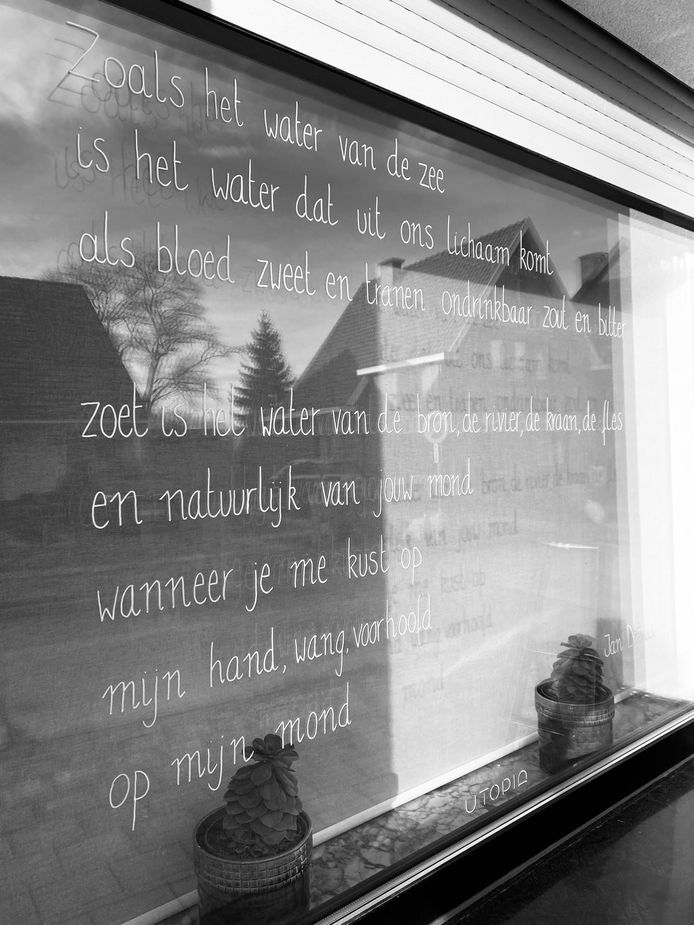 Zoals het water van de zee
is het water dat uit ons lichaam komt
als bloed zweet en tranen ondrinkbaar zout en bitter
zoet is het water van de bron, de rivier, de kraan, de fles
en natuurlijk van jouw mond
wanneer je me kust op
mijn hand, wang, voorhoofd
op mijn mond
Jan
UTOPIA